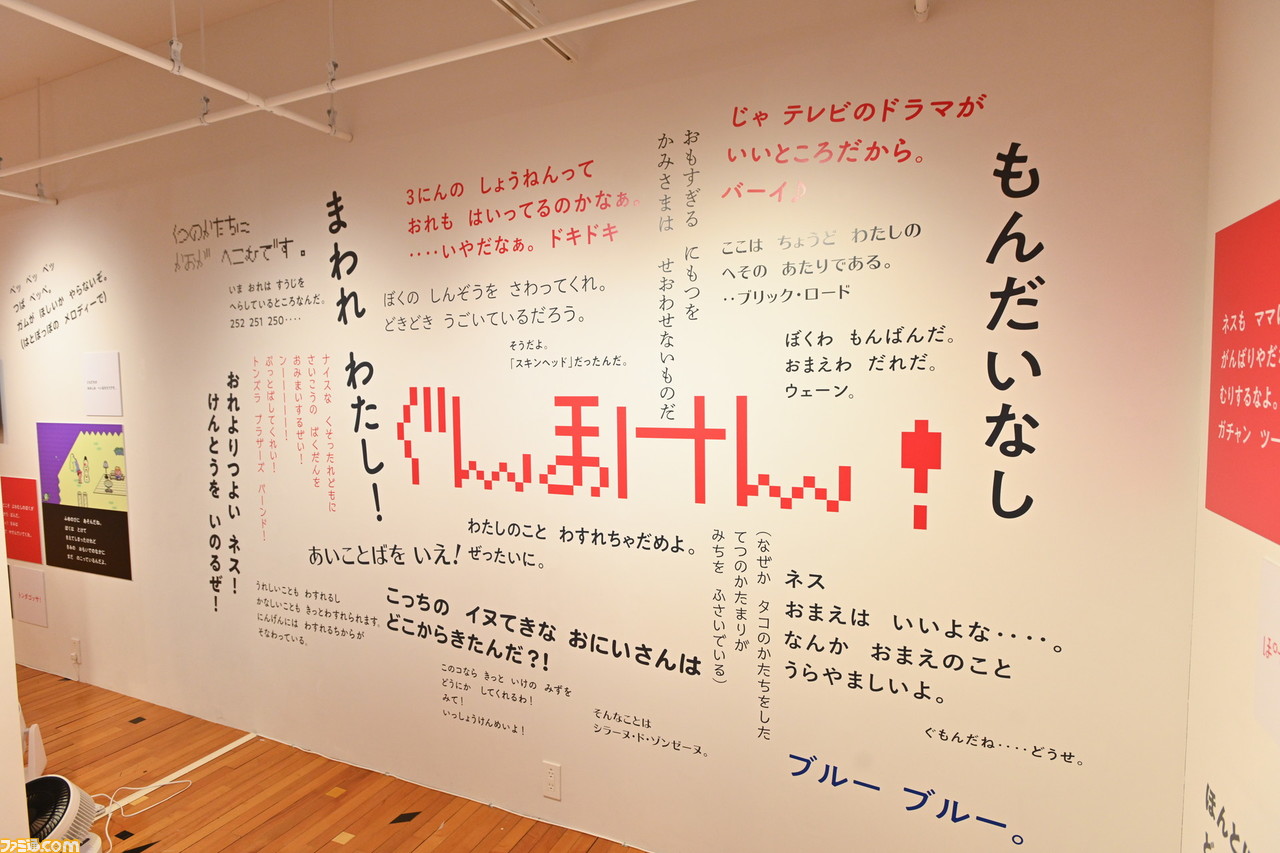 ペッ ペッ ペッ
つば ペッペ。
ガムが ほしいか やらないぞ。
(はとぽっぽの メロディーで)
くつのかたちに
かおが へこむです。
いま おれは すうじを
へらしているところなんだ。
252 251 250‥‥
まわれ わたし!
3にんの しょうねんって
おれも はいってるのかなぁ。
‥‥いやだなぁ。ドキドキ
ぼくの しんぞうを さわってくれ。
どきどき うごいているだろう。
そうだよ。
「スキンヘッド」だったんだ。
おもすぎる にもつを
かみさまは せおわせないものだ
じゃ テレビのドラマが
いいところだから。
バーイ♪
ここは ちょうど わたしの
へその あたりである。
‥ブリック・ロード
ぼくわ もんばんだ。
おまえわ だれだ。
ウェーン。
もんだいなし
ナイスな くそったれどもに
さいこうの ばくだんを
おみまいするぜい!
ンーーーーー!
ぶっとばしてくれい!
トンズラ ブラザーズ バーンド!
おれよりつよい ネス!
けんとうを いのるぜ!
ぐんまけん!
わたしのこと わすれちゃだめよ。
ぜったいに。
あいことばを いえ!
うれしいことも わすれるし
かなしいことも きっとわすれられます。
にんげんには わすれるちからが
そなわっている。
こっちの イヌてきな おにいさんは
どこからきたんだ?!
このコなら きっと いけの みずを
どうにか してくれるわ!
みて!
いっしょうけんめいよ!
そんなことは
シラーヌ・ド・ゾンゼーヌ。
(なぜか タコのかたちをした
てつのかたまりが
みちを ふさいでいる)
ネス
おまえは いいよな‥‥。
なんか おまえのこと
うらやましいよ。
ぐもんだね‥‥どうせ。
ブルー ブルー。
ネスも ママに
がんばりやだ
むりするなよ。
ガチャン ツー
ほんとに
ど
ファミ通.com